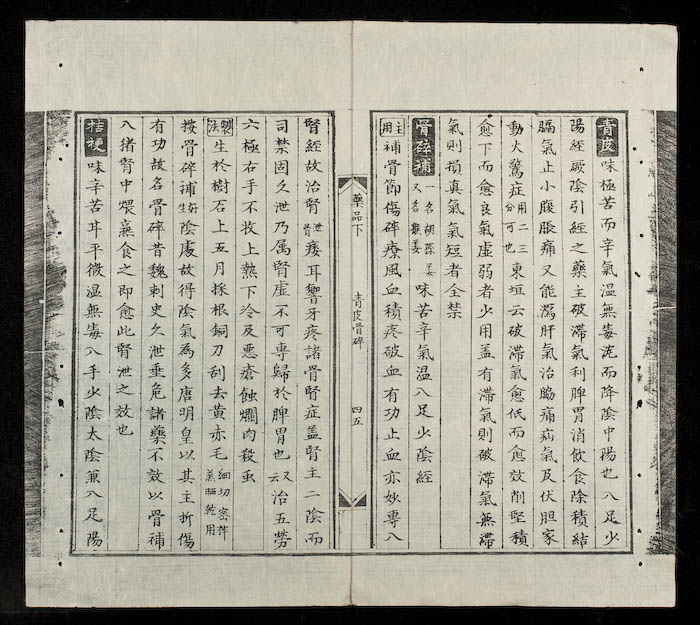 青皮 味極苦而辛氣温無毒沈而降陰中陽也入足少
陽經厥陰引經之藥主破滯氣利脾胃消飲食除積結
膈氣止小腹脹痛又能瀉肝氣治脇痛疝氣及伏胆家
動火驚症用二三分可也東垣云破滯氣愈低而愈效削堅積
愈下而愈良氣虛弱者少用盖有滯氣則破滯氣無滯
氣則損真氣氣短者全禁
骨碎補 一名胡孫姜又名猴姜 味苦辛氣温入足少陰經
主用 補骨節傷碎療風血積疼破血有功止血亦妙專入
藥品下
青皮骨碎
四五
腎經故治腎泄骨痿耳響牙疼諸骨腎症盖腎主二陰而
司禁固久泄乃属腎虛不可專歸於脾胃也又云治五勞
六極右手不收上熱下冷及悪瘡蝕爛肉殺虫
製法 生於樹石上五月採根銅刀刮去黄赤毛細切蜜伴蒸晒乾用
按骨碎補好生陰處故得陰氣為多唐明皇以其主折傷
有功故名骨碎昔魏刺史久泄垂危諸藥不效以骨補
入猪腎中煨熟食之即愈此腎泄之效也
桔梗 味辛苦耳平微温無毒入手少陰太陰兼入足陽